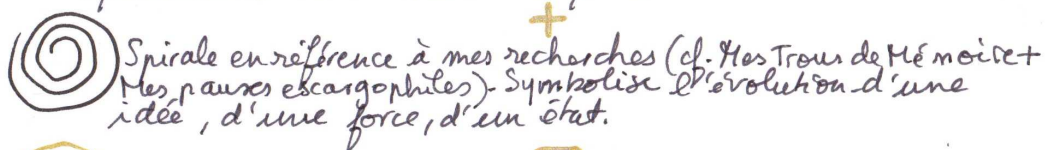 +
Spirale en référence à mes recherches (cf. Mes Trous de Mémoire +
Mes pauses escargophiles). Symbolise l'évolution d'une
idée, d'une force, d'un état.